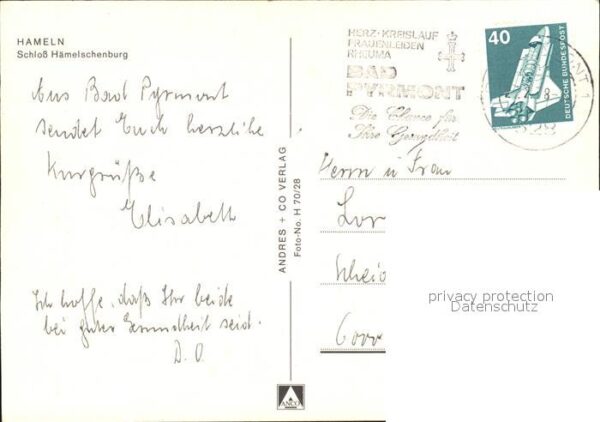 HAMELN
Schloß Hämelschenburg
Aus Bad Pyrmont
sendet Euch herzliche
Kurgrüße
Elisabeth
Ich hoffe, daß Ihr beide
bei guter Gesundheit seid.
D. O.
ANDRES + CO VERLAG
Foto-No. H 70/28
ANCO
HERZ-KREISLAUF
FRAUENLEIDEN
RHEUMA
BAD
PYRMONT
Die Chance für
Ihre Gesundheit
40
DEUTSCHE BUNDESPOST
Herrn u Frau
privacy protection
Datenschutz